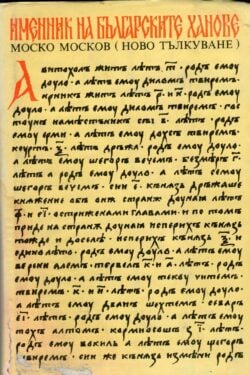 ИМЕННИК НА БЪЛГАРСКИТЕ ХАНОВЕ
МОСКО МОСКОВ (НОВО ТЪЛКУВАНЕ)
Авитохолъ житъ лѣтъ .т҃. родъ емоу
доуло. а лѣтъ емоу диломъ твиремъ.
ирникъ житъ лѣтъ .р҃. и н҃. родъ емоу
доуло. а лѣтъ емоу диломъ твиремъ. гос
тоунъ намѣстьникъ сы в҃. лѣтъ. родъ
емоу ерми. а лѣтъ емоу дохсъ твиремъ.
коуртъ. ѯ҃. лѣтъ дръжа. родъ емоу доуло.
а лѣтъ емоу шегоръ вечемъ. безмѣръ г҃.
а лѣтъ родъ емоу доуло. а лѣтъ семоу
шегоръ вечемъ. сии е҃. кънязь дръжаше
княжение обѣ онѣ странѣ доуная лѣтъ
.ф҃. и е҃і. остриженами главами. и по томъ
приде на странѣ доуная исперихъ кънязь
тожде и доселѣ. исперихъ кънязь ѯ҃. и
едино лѣто. родъ емоу доуло. а лѣтъ емоу
верени алемъ. тервель к҃. и .а҃. лѣто. родъ
емоу доуло. а лѣтъ емоу текоу читемъ.
твиремъ .к҃. и и҃. лѣтъ. родъ емоу доуло.
а лѣтъ емоу дванъ шехтемъ. севаръ
.е҃. лѣтъ. родъ емоу доуло. а лѣтъ емоу
тохъ алтомъ. кормисошь з҃і. лѣтъ.
родъ емоу вокиль а лѣтъ емоу шегоръ
твиремъ. сии же кънязь измѣни родъ